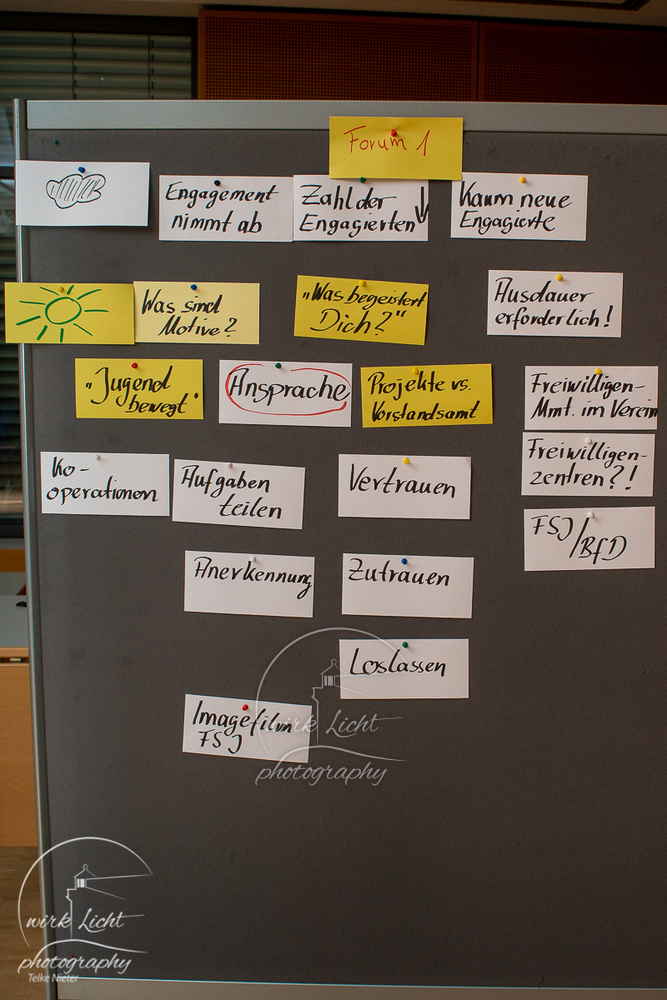 Forum 1
Engagement
nimmt ab
Zahl der
Engagierten ↓
Kaum neue
Engagierte
Was sind
Motive?
„Was begeistert
Dich?“
Ausdauer
erforderlich!
„Jugend
bewegt“
Ansprache
Projekte vs.
Vorstandsamt
Freiwilligen-
Mmt. im Verein
Ko-
operationen
Aufgaben
teilen
Vertrauen
Freiwilligen-
zentren?!
FSJ/BfD
Anerkennung
Zutrauen
Loslassen
Imagefilm
FSJ
wirk Licht
photography
wirk Licht
photography
Telke Nieter